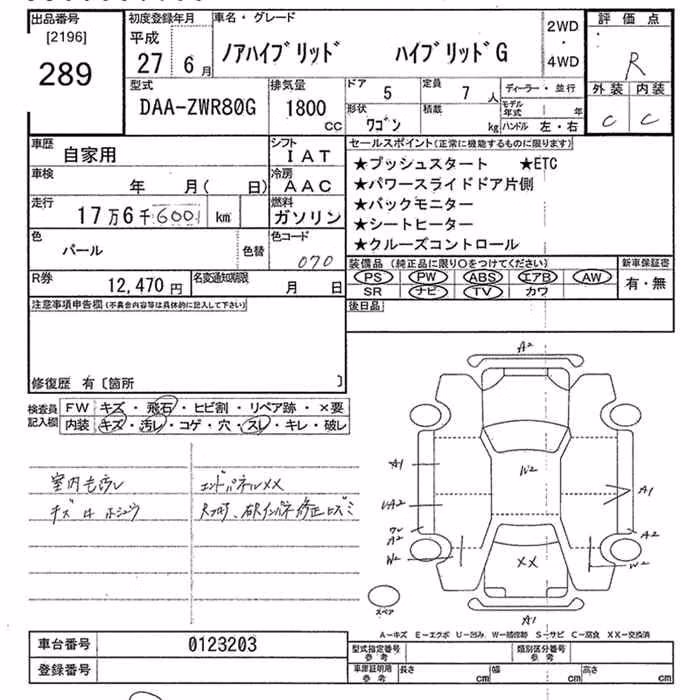 出品番号
[2196]
289
初度登録年月
平成
27 6月
車名・グレード
ノアハイブリッド ハイブリッドG
2WD
・
4WD
評価点
R
外装 内装
C C
型式
DAA-ZWR80G
排気量
1800
CC
ドア 5
定員 7人
ディーラー・並行
形状
ワゴン
積載
kg
モデル年式 年
ハンドル 左・右
車歴
自家用
シフト
IAT
車検
年 月( 日)
冷房
AAC
走行
17万6千600 km
燃料
ガソリン
色
パール
色替
色コード
070
R券
12,470円
名変通知期限
月 日
セールスポイント(正常に機能するものに限ります)
★プッシュスタート ★ETC
★パワースライドドア片側
★バックモニター
★シートヒーター
★クルーズコントロール
装備品(純正品に限り○をつけてください)
PS PW ABS エアB AW
SR ナビ TV カワ
新車保証書
有・無
後日品
注意事項申告欄(不具合内容等は具体的に記入して下さい)
修復歴 有〔箇所 〕
検査員記入欄
FW キズ・飛石・ヒビ割・リペア跡・×要
内装 キズ・汚レ・コゲ・穴・スレ・キレ・破レ
室内モ汚レ
エンドパネルXX
A2
A1
UA2
A2
W2
W2
XX
A1
A2
W2
A1
スペア
A-キズ E-エクボ U-凹み W-補修跡 S-サビ C-腐食 XX-交換済
車台番号 0123203
登録番号
型式指定番号参考
類別区分番号参考
車庫証明用参考
長さ cm 幅 cm 高さ cm